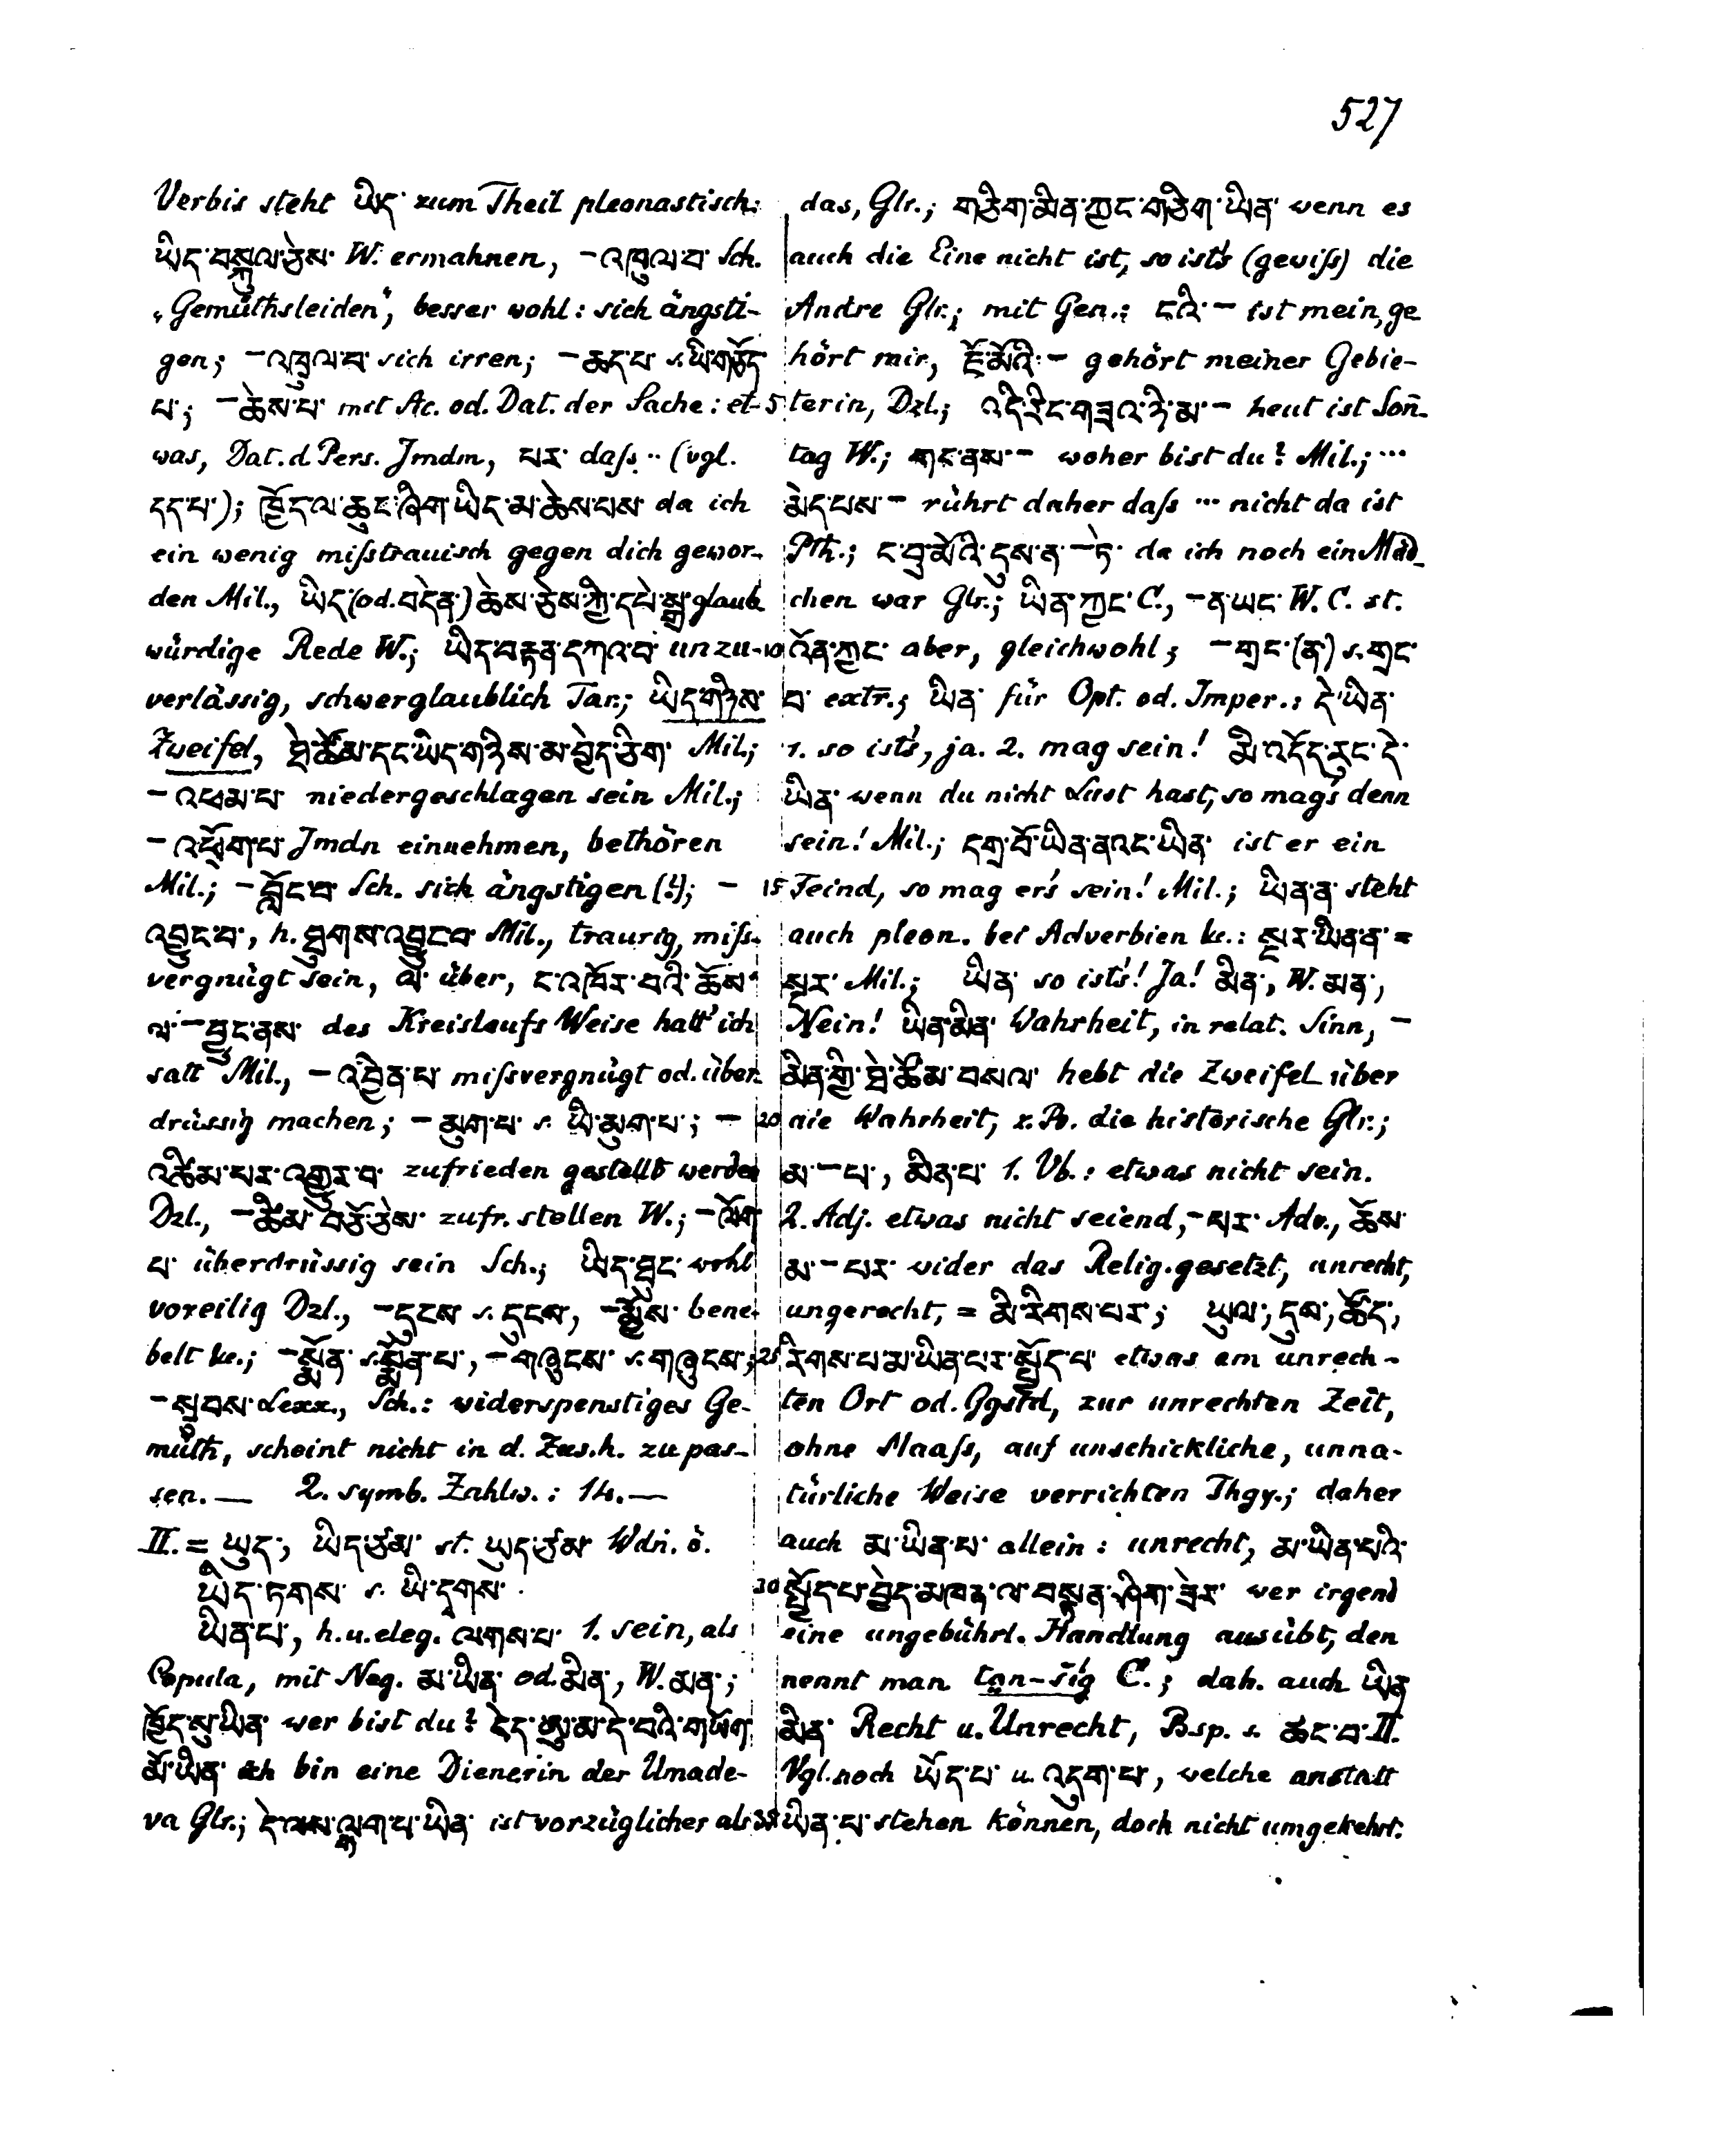 527
Verbis steht ཡིད་ zum Theil pleonastisch:
ཡིད་བསྐུལ་ཅེས་ W. ermahnen, –འཁྲུལ་བ་ Sch.
„Gemüthsleiden", besser wohl: sich ängsti-
gen; –འཁྲུལ་བ་ sich irren; –ཆད་པ་ s. ཡི་གཅོད་
པ་; –ཆེས་པ་ mit Ac. od. Dat. der Sache: et-
was, Dat. d Pers. Jmdm, པར་ dass ·· (vgl.
དད་པ་); ཁྱོད་ལ་ཆུང་ཞིག་ཡིད་མ་ཆེས་པས་ da ich
ein wenig misstrauisch gegen dich gewor-
den Mil., ཡིད་(od. བདེན་) ཆེས་ཅེས་ཀྱི་དཔེ་སྒྲ་ glaub
würdige Rede W.; ཡིད་བརྟན་དཀའ་བ་ unzu-
verlässig, schwerglaublich Tar.; ཡིད་གཉིས་
Zweifel, ཐེ་ཚོམ་དང་ཡིད་གཉིས་མ་བྱེད་ཅིག་ Mil;
–འཕམ་པ་ niedergeschlagen sein Mil.;
–འཕྲོག་པ་ Jmdn einnehmen, bethören
Mil.; –བློང་བ་ Sch. sich ängstigen (!); –
འབྱུང་བ་, h. ཐུགས་འབྱུང་བ་ Mil., traurig, miss-
vergnügt sein, ལ་ über, ང་འཁོར་བའི་ཆོས་
ལ་–བྱུང་ནས་ des Kreislaufs Weise hatt' ich
satt Mil., –འབྱིན་པ་ missvergnügt od. über-
drüssig machen; –མུག་པ་ s. ཡི་མུག་པ་; –
འཚིམ་པར་འགྱུར་བ་ zufrieden gestellt werden
Dzl., –ཚིམ་བཅོ་ཅེས་ zufr. stellen W.; –ལོག་
པ་ überdrüssig sein Sch.; ཡིད་ཐུང་ wohl
voreilig Dzl., –དུངས་ s. དུངས་, –མྱོས་ bene-
belt &c.; –སྨོན་ s. སྨོན་པ་, –གཞུངས་ s. གཞུངས་;
–སུབས་ Lexx., Sch.: widerspenstiges Ge-
müth, scheint nicht in d. Zus.h. zu pas-
sen.— 2. symb. Zahlw.: 14.—
II. = ཡུད་, ཡིད་ཙམ་ st. ཡུད་ཙམ་ Wdn. ö.
ཡིད་ཏགས་ s. ཡི་དྭགས་.
ཡིན་པ་, h. u. eleg. ལགས་པ་ 1. sein, als
Copula, mit Neg. མ་ཡིན་ od. མིན་, W. མན་;
ཁྱོད་སུ་ཡིན་ wer bist du? ངེད་ཨུ་མ་དེ་བའི་གཡོག་
མོ་ཡིན་ ich bin eine Dienerin der Umade-
va Glr.; དེ་ལས་ལྷག་པ་ཡིན་ ist vorzüglicher als
das, Glr.; གཅིག་མིན་ཀྱང་གཅིག་ཡིན་ wenn es
auch die Eine nicht ist, so ist's (gewiss) die
Andre Glr.; mit Gen.: ངའི་– ist mein, ge
hört mir, ཇོ་མོའི་– gehört meiner Gebie-
5 terin, Dzl.; འདི་རིང་གཟའ་ཉི་མ་– heut ist Son̄-
tag W.; གང་ནས་– woher bist du? Mil.; ···
མེད་པས་– rührt daher dass ··· nicht da ist
Pth.; ང་བུ་མོའི་དུས་ན་–ཏེ་ da ich noch ein Mäd-
chen war Glr.; ཡིན་ཀྱང་ C., –ན་ཡང་ W. C. st.
10 འོན་ཀྱང་ aber, gleichwohl; –གྲང་(ན་) s. གྲང་
བ་ extr.; ཡིན་ für Opt. od. Imper.: དེ་ཡིན་
1. so ist's, ja. 2. mag sein! མི་འདོད་རུང་དེ་
ཡིན་ wenn du nicht Lust hast, so mag's denn
sein! Mil.; དགྲ་བོ་ཡིན་ནའང་ཡིན་ ist er ein
15 Feind, so mag er's sein! Mil.; ཡིན་ན་ steht
auch pleon. bei Adverbien &c.: སྔར་ཡིན་ན་ =
སྔར་ Mil.; ཡིན་ so ist's! Ja! མིན་, W. མན་,
Nein! ཡིན་མིན་ Wahrheit, in relat. Sinn, –
མིན་གྱི་ཐེ་ཚོམ་བསལ་ hebt die Zweifel über
20 die Wahrheit, z. B. die historische Glr.;
མ་–པ་, མིན་པ་ 1. Vb.: etwas nicht sein.
2. Adj. etwas nicht seiend, –པར་ Adv., ཆོས་
མ་–པར་ wider das Relig.gesetzt, unrecht,
ungerecht, = མི་རིགས་པར་; ཡུལ་, དུས་, ཚོད་,
25 རིགས་པ་མ་ཡིན་པར་སྤྱོད་པ་ etwas am unrech-
ten Ort od. Ggstd, zur unrechten Zeit,
ohne Maass, auf unschickliche, unna-
türliche Weise verrichten Thgy.; daher
auch མ་ཡིན་པ་ allein: unrecht, མ་ཡིན་པའི་
30 སྤྱོད་པ་བྱེད་མཁན་ལ་བསྟན་ཞིག་ཟེར་ wer irgend
eine ungebührl. Handlung ausübt, den
nennt man tan-śig C.; dah. auch ཡིན་
མིན་ Recht u. Unrecht, Bsp. s. ཚང་བ་ II.
Vgl. noch ཡོད་པ་ u. འདུག་པ་, welche anstatt
35 ཡིན་པ་ stehen können, doch nicht umgekehrt.